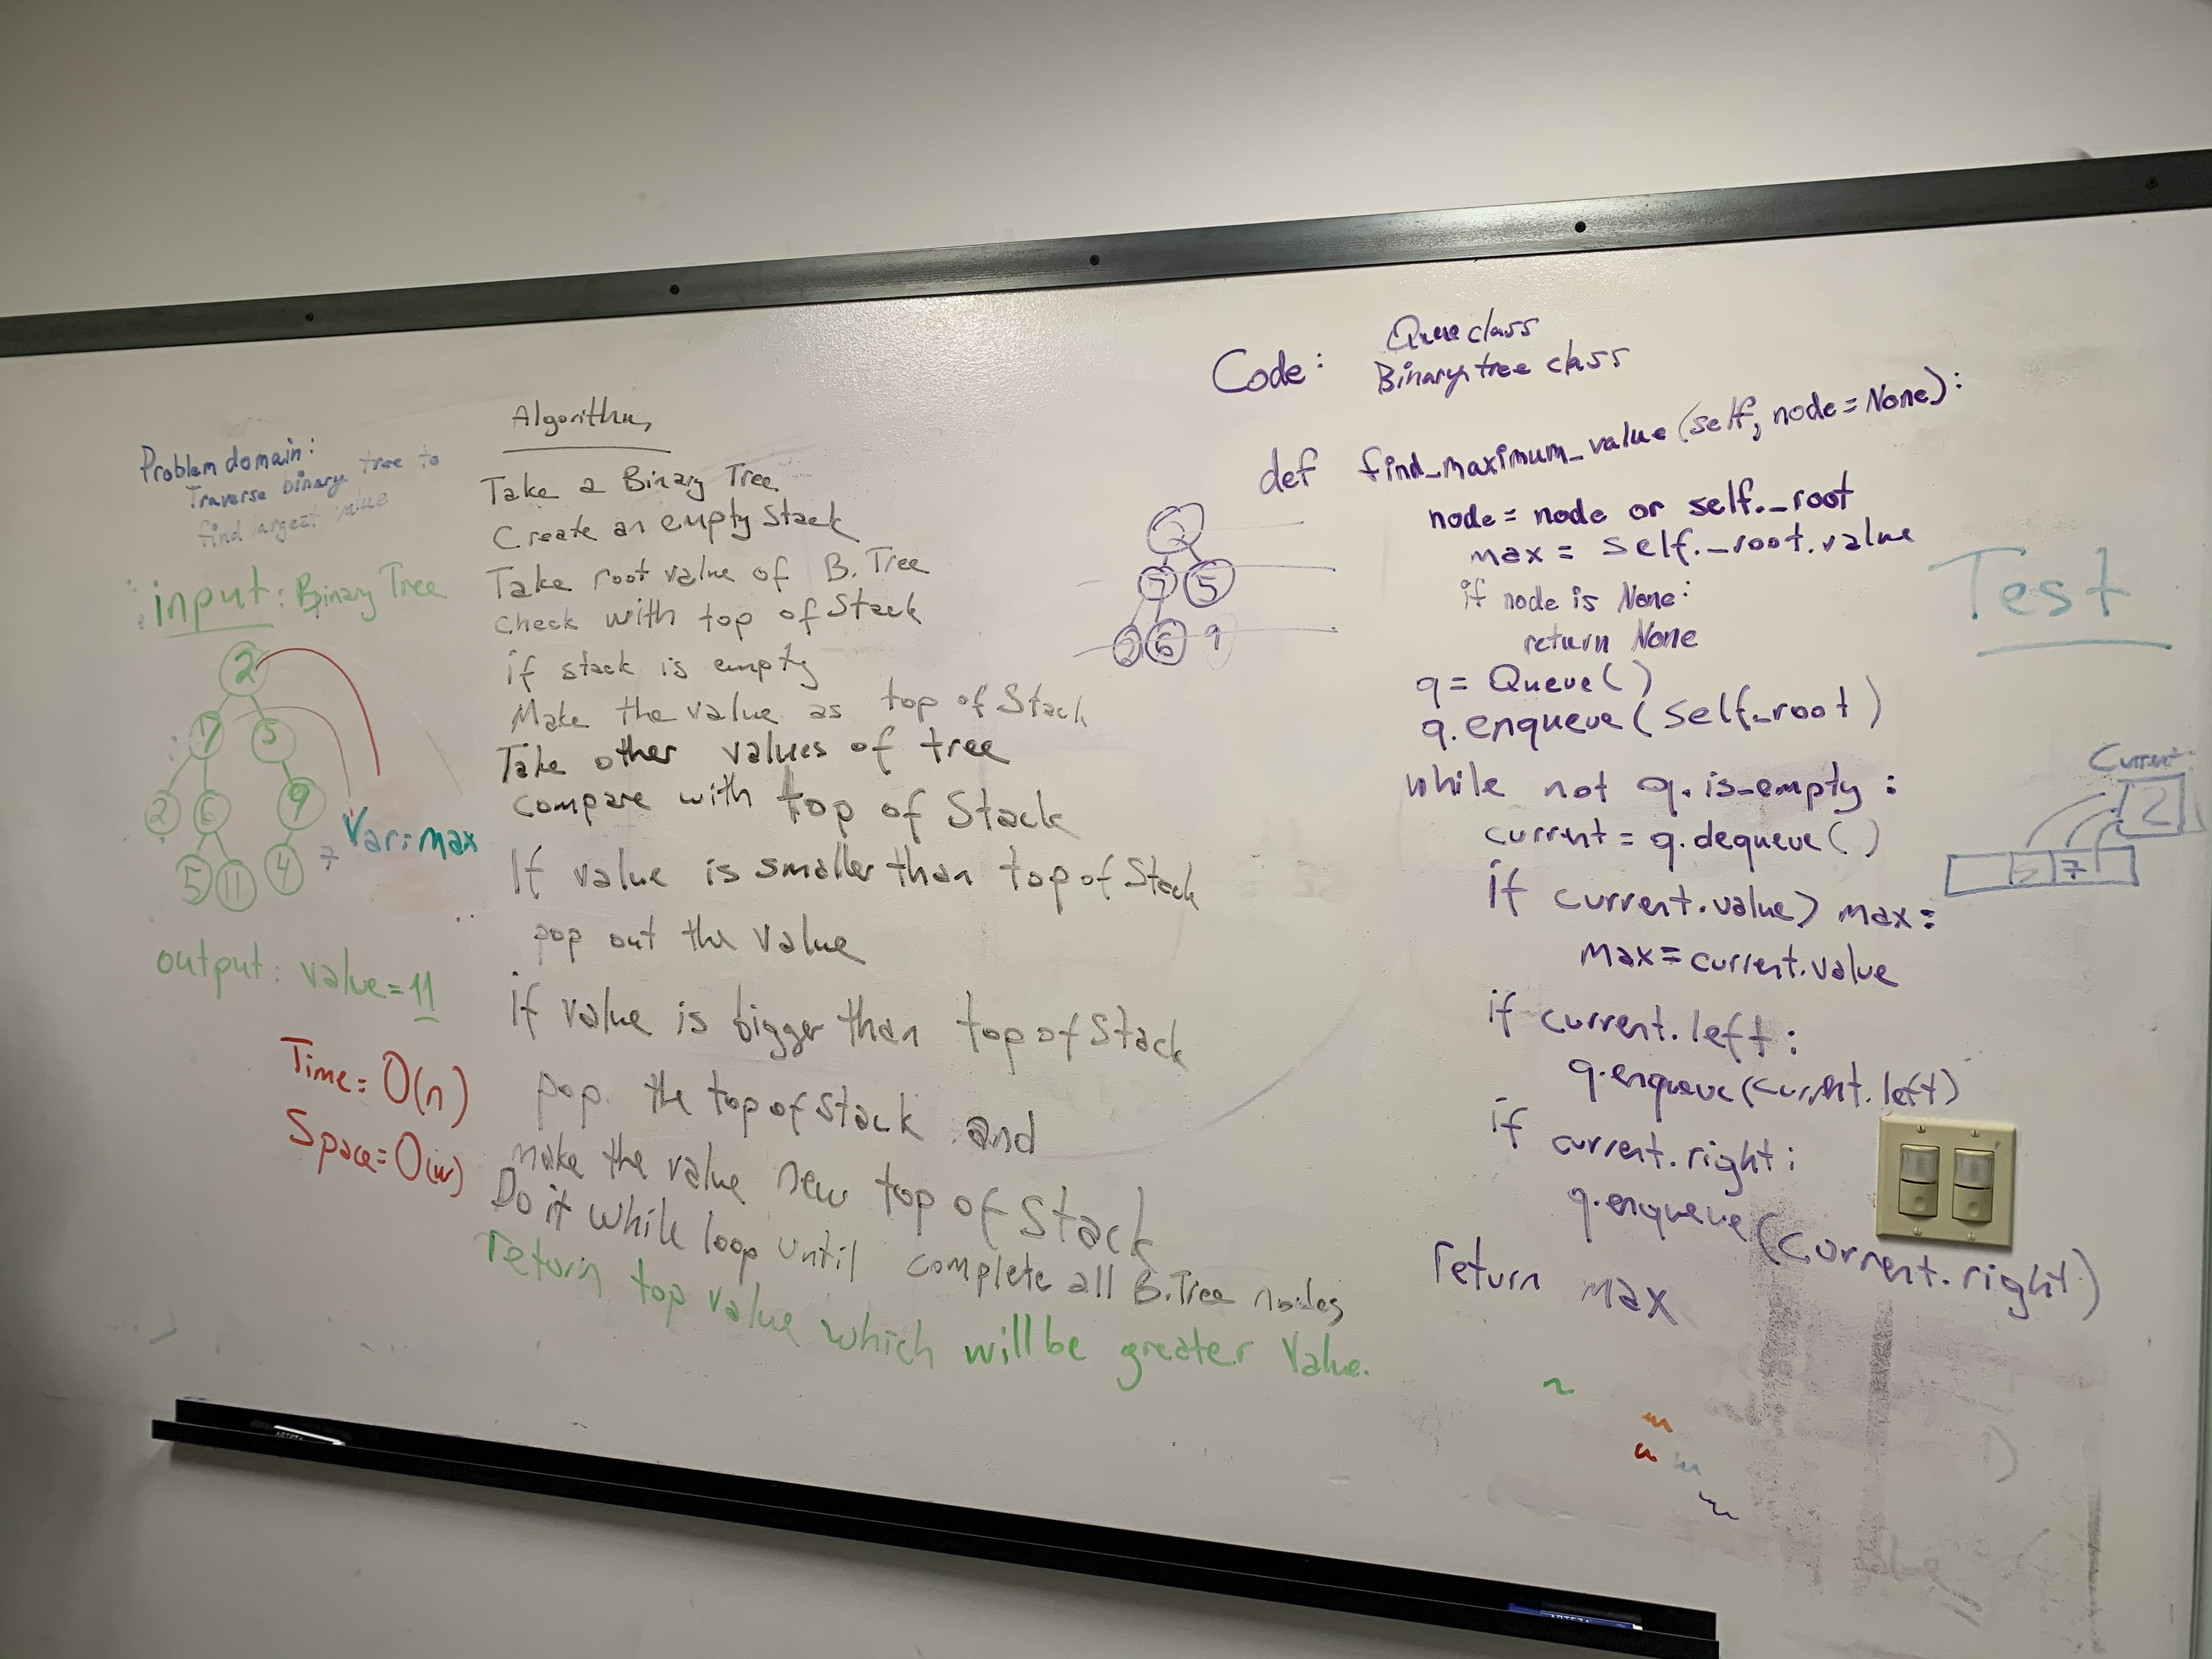 Problem domain:
Traverse binary tree to
find largest value
input: Binary Tree
2
7
5
2
6
9
5
11
4
7
Var: max
output: value = 11
Time = O(n)
Space = O(w)
Algorithm
Take a Binary Tree
Create an empty Stack
Take root value of B. Tree
check with top of Stack
if stack is empty
Make the value as top of Stack
Take other values of tree
compare with top of Stack
If value is smaller than top of Stack
pop out the value
if value is bigger than top of Stack
pop the top of Stack and
make the value new top of Stack
Do it while loop until complete all B.Tree nodes
return top value which will be greater Value.
2
7
5
2
6
9
Code:
Queue class
Binary tree class
def find_maximum_value (self, node = None):
node = node or self._root
max = self._root.value
if node is None:
return None
q = Queue()
q.enqueue(self._root)
while not q.is_empty:
current = q.dequeue()
if current.value > max:
max = current.value
if current.left:
q.enqueue(current.left)
if current.right:
q.enqueue(current.right)
return max
Test
Current
2
5
7